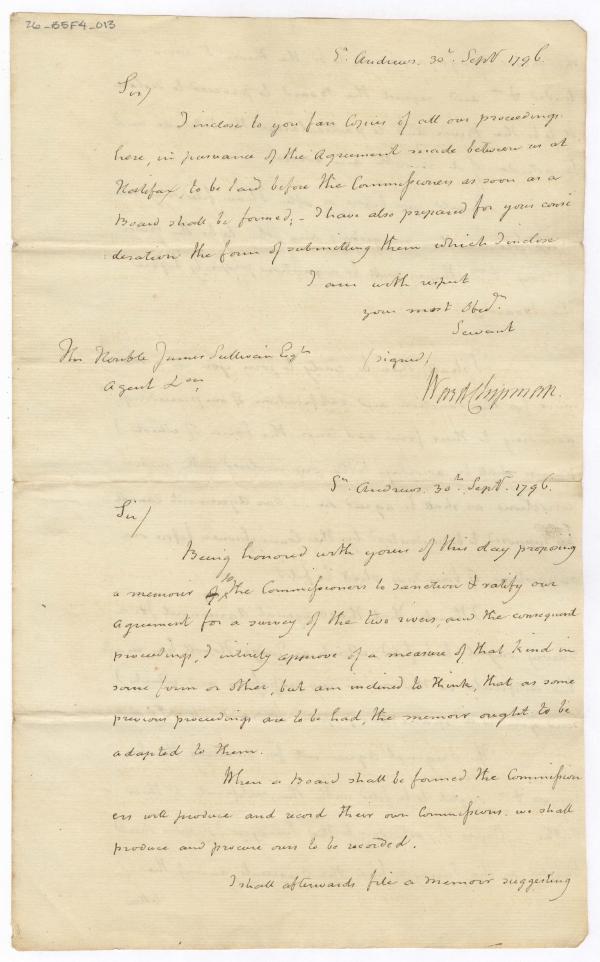 26_B5F4_013
St. Andrews. 30th. Septr. 1796.
Sir/
I inclose to you fair Copies of all our proceedings
here, in pursuance of the Agreement made between us at
Halifax, to be laid before the Commissioners as soon as a
Board shall be formed; - I have also prepared for your consi
deration the form of submitting them which I inclose
I am with respect
your most Obedt.
Servant
The Honble James Sullivan Esqr
(signed)
Agent &c
Ward Chipman.
St. Andrews. 30th. Septr. 1796.
Sir/
Being honored with yours of this day proposing
a memoir to the Commissioners to sanction & ratify our
Agreement for a survey of the two rivers, and the consequent
proceedings, I intirely approve of a measure of that kind in
some form or other, but am inclined to think, that as some
previous proceedings are to be had, the memoir ought to be
adapted to them.
When a Board shall be formed the Commission
ers will produce and record their own Commissions. we shall
produce and procure ours to be recorded.
I shall afterwards file a memoir suggesting